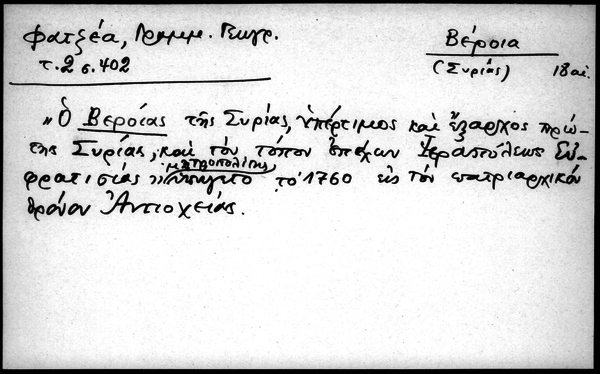 Φατζέα, Γραμμ. Γεωγρ.
τ. 2 σ. 402
Βέροια
(Συρίας) 18 αἰ.
"Ὁ Βεροίας τῆς Συρίας, ὑπέρτιμος καὶ ἔξαρχος πρώ-
της Συρίας, καὶ τὸν τόπον ἐπέχων Ἱεραπόλεως Εὐ-
μητροπολίτης
φρατισίας" ὑπήγετο τὸ 1760 εἰς τὸν πατριαρχικόν
θρόνον Ἀντιοχείας.